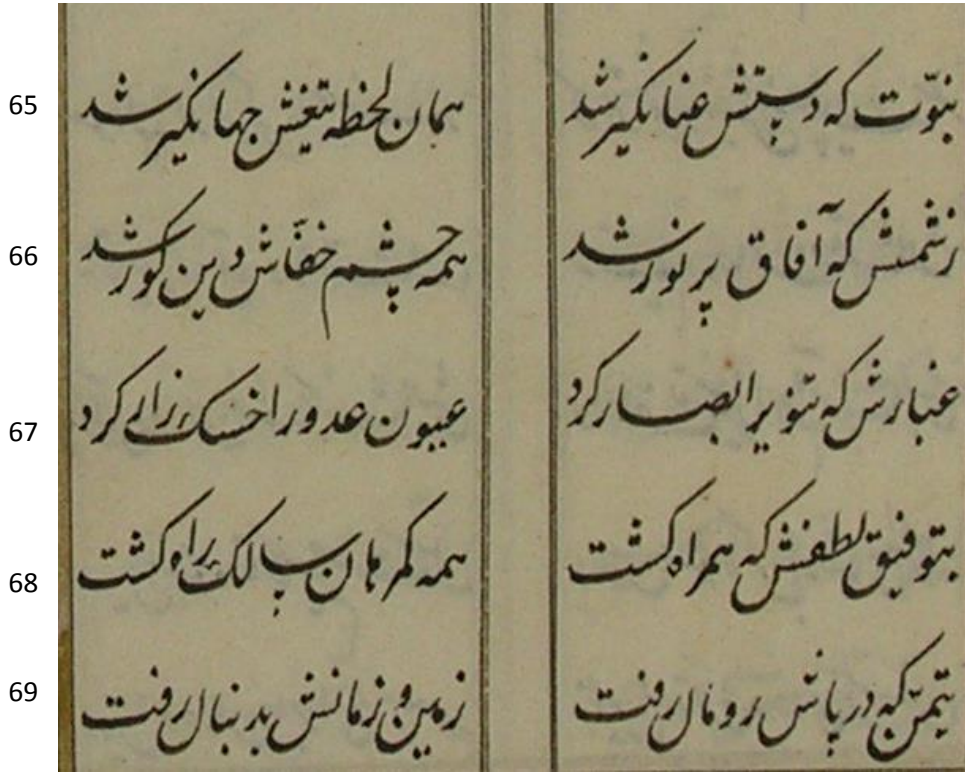 65 نبوّت که دستش عنانکیر شد همان لحظه تیغش جهانکیر شد
66 ز شمسش که آفاق پر نور شد همه چشم خفّاش دین کور شد
67 غبارش که تنویر ابصار کرد عیون عدو را خسک زار کرد
68 بتوفیق لطفش که همراه کشت همه کمرهان سالک راه کشت
69 تیمّن که در پاش رومال رفت زمین و زمانش بدنبال رفت